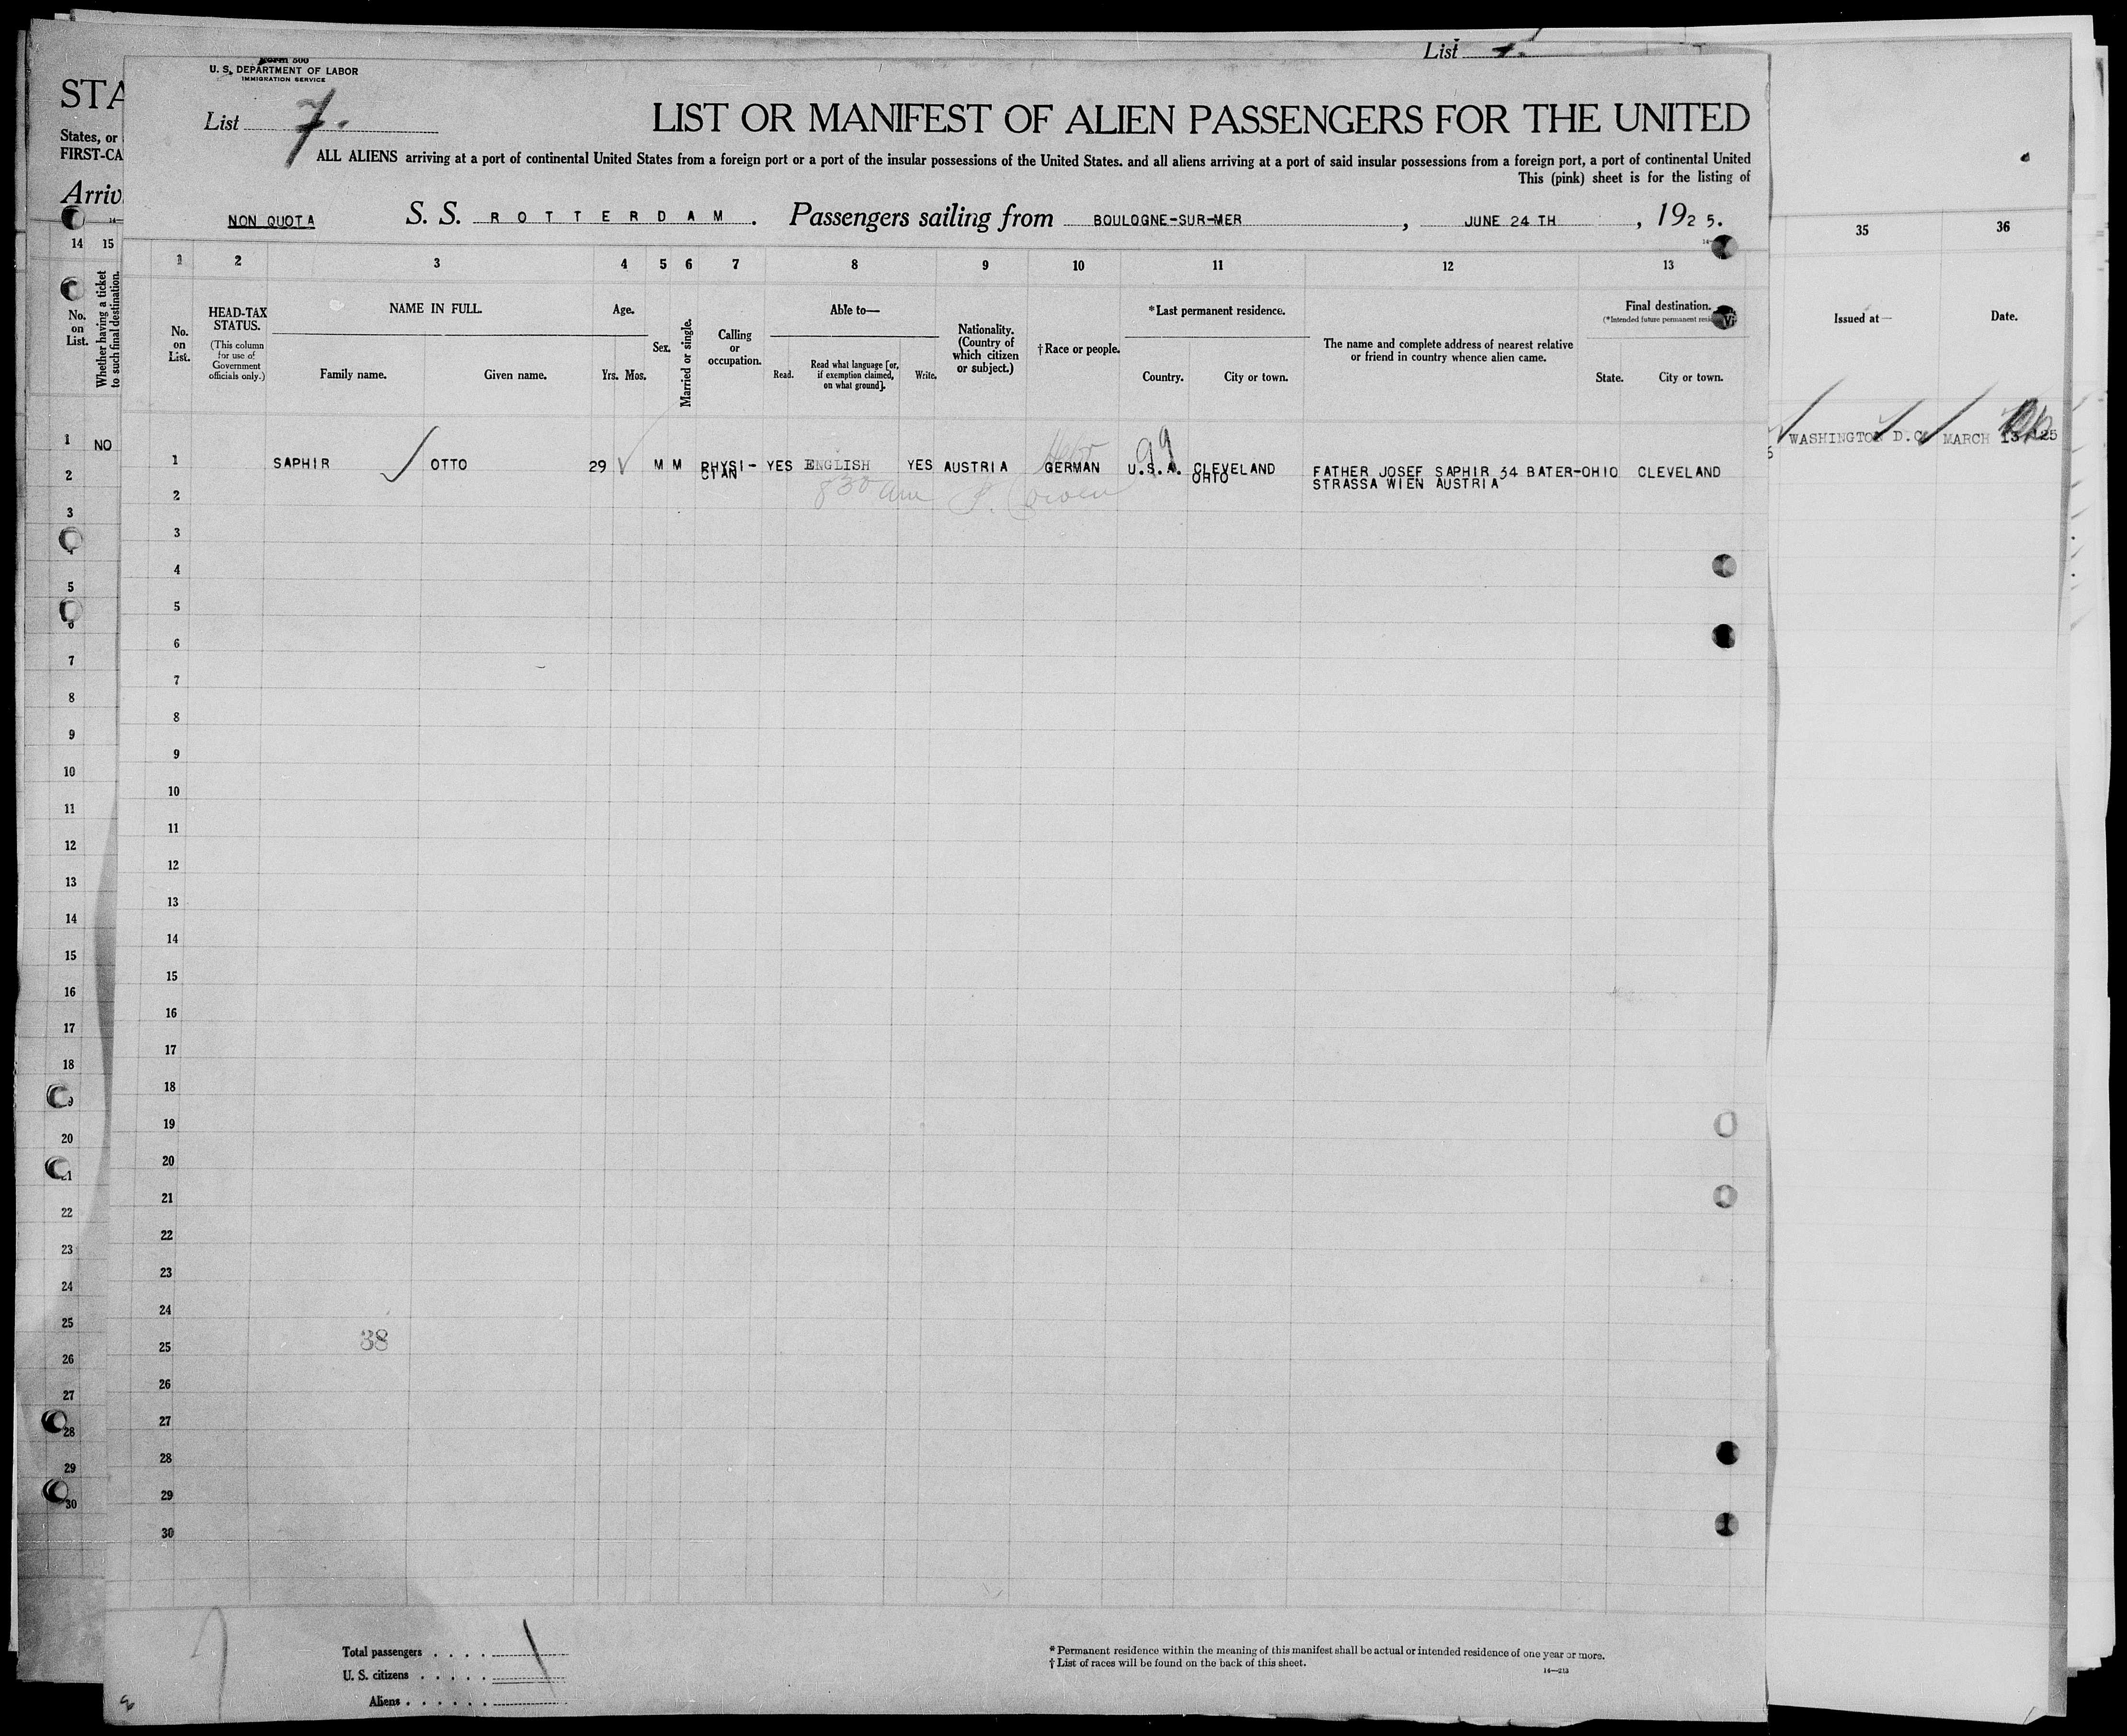 List
Form 500
U. S. DEPARTMENT OF LABOR
IMMIGRATION SERVICE
STA
List 7.
LIST OR MANIFEST OF ALIEN PASSENGERS FOR THE UNITED
States, or
FIRST-CA
ALL ALIENS arriving at a port of continental United States from a foreign port or a port of the insular possessions of the United States. and all aliens arriving at a port of said insular possessions from a foreign port, a port of continental United
This (pink) sheet is for the listing of
Arriv
NON QUOTA S. S. ROTTERDAM. Passengers sailing from BOULOGNE-SUR-MER, JUNE 24 TH, 1925.
14 15 1 2 3 4 5 6 7 8 9 10 11 12 13 35 36
No. on List.
Whether having a ticket to such final destination.
No. on List.
HEAD-TAX STATUS.
(This column for use of Government officials only.)
NAME IN FULL.
Family name. Given name.
Age.
Yrs. Mos.
Sex.
Married or single.
Calling or occupation.
Able to—
Read. Read what language [or, if exemption claimed, on what ground]. Write.
Nationality. (Country of which citizen or subject.)
†Race or people.
*Last permanent residence.
Country. City or town.
The name and complete address of nearest relative or friend in country whence alien came.
Final destination.
State. City or town.
Issued at—
Date.
1 NO
WASHINGTON D.C. MARCH 13 125
1 SAPHIR OTTO 29 M M PHYSI- YES ENGLISH YES AUSTRIA GERMAN U.S.A. CLEVELAND FATHER JOSEF SAPHIR 34 BATER-OHIO CLEVELAND
CIAN OHIO STRASSA WIEN AUSTRIA
Hebr
99
830 am
2
3
4
5
6
7
8
9
10
11
12
13
14
15
16
17
18
19
20
21
22
23
24
25
26
27
28
29
30
2
3
5
7
8
9
10
11
12
13
14
15
16
17
18
20
22
23
24
25
26
27
28
29
30
38
Total passengers
U. S. citizens
Aliens
* Permanent residence within the meaning of this manifest shall be actual or intended residence of one year or more.
† List of races will be found on the back of this sheet.
14—213